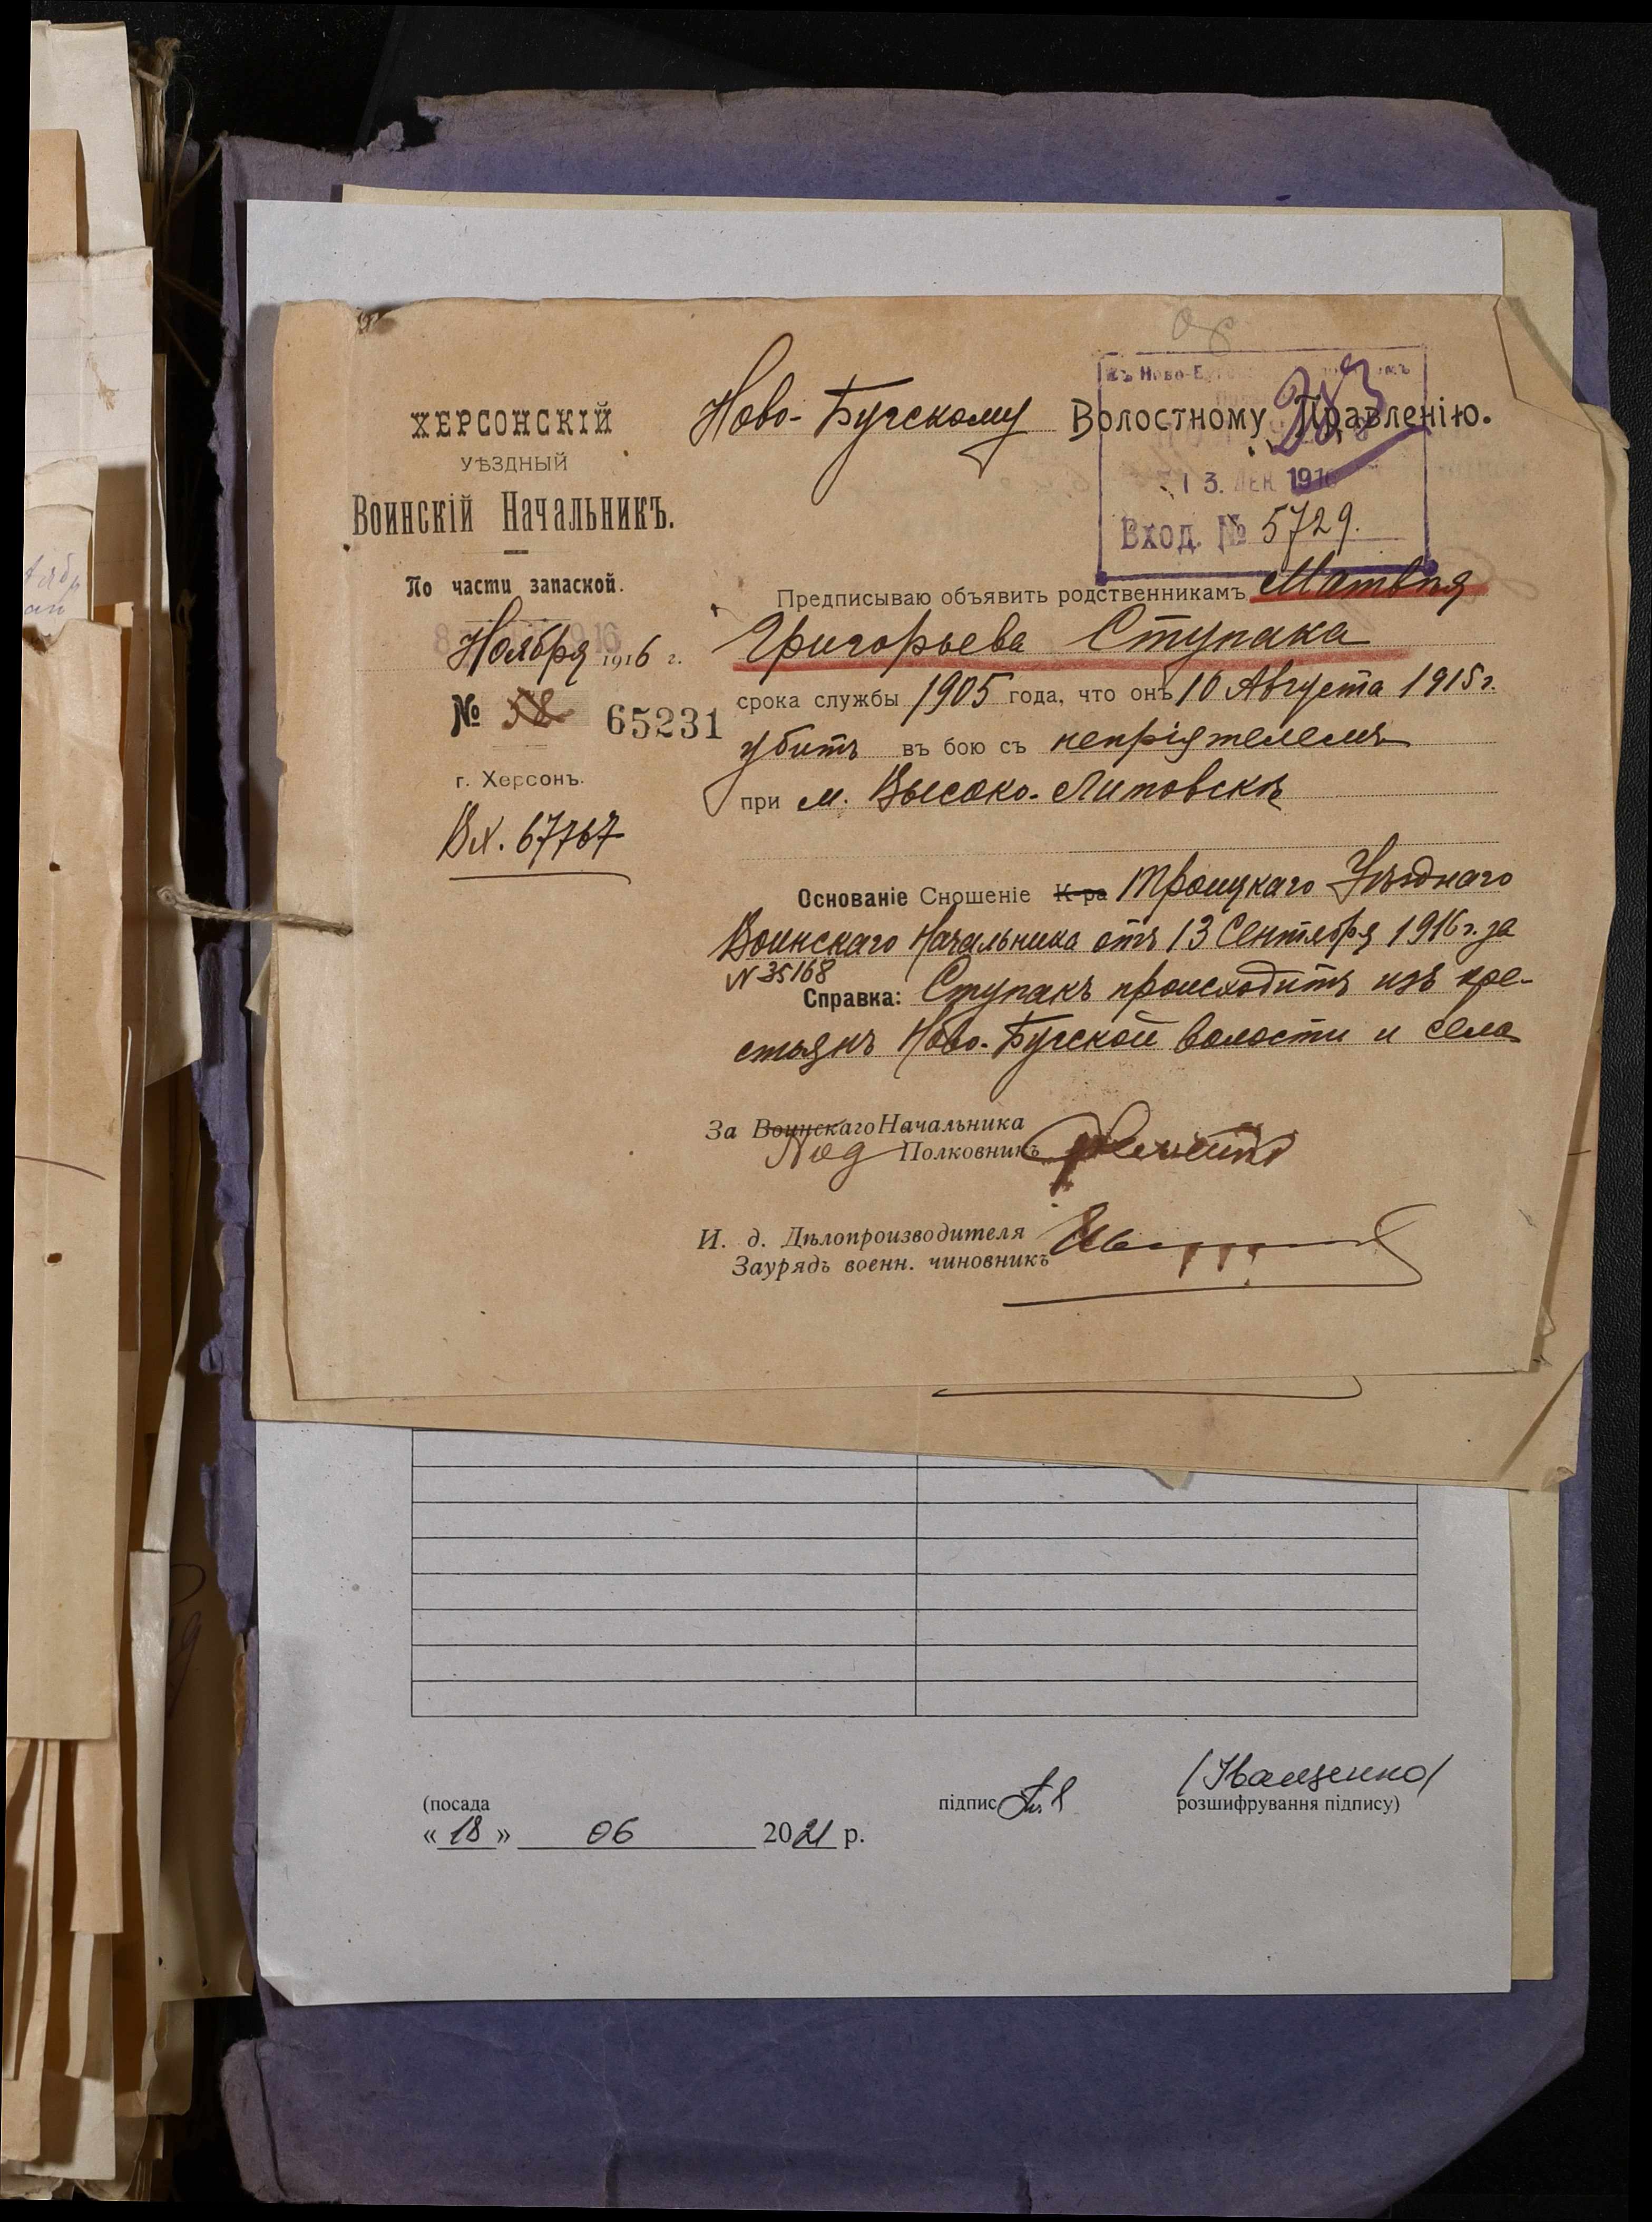 ХЕРСОНСКІЙ
УѢЗДНЫЙ
Воинскій Начальникъ.
По части запаской.
Ноября 1916 г.
№ 58 65231
г. Херсонъ.
Вх. 67767
Ново-Бугскому Волостному Правленію.
283
13. ДЕК 1916
Вход. № 5729.
Предписываю объявить родственникамъ Матвѣя
Григорьева Ступака
срока службы 1905 года, что онъ 10 Августа 1915 г.
убитъ въ бою съ непріятелемъ
при м. Высоко-Литовскѣ
Основаніе Сношеніе К-ра Троицкаго Уѣзднаго
Воинскаго Начальника отъ 13 Сентября 1916 г. за
N 35168
Справка: Ступакъ происходитъ изъ кре-
стьянъ Ново-Бугской волости и села
За Воинскаго Начальника
Под Полковникъ
И. д. Дѣлопроизводителя
Заурядъ военн. чиновникъ
(посада
підпис
/Іващенко/
розшифрування підпису)
« 18 » 06 2021 р.